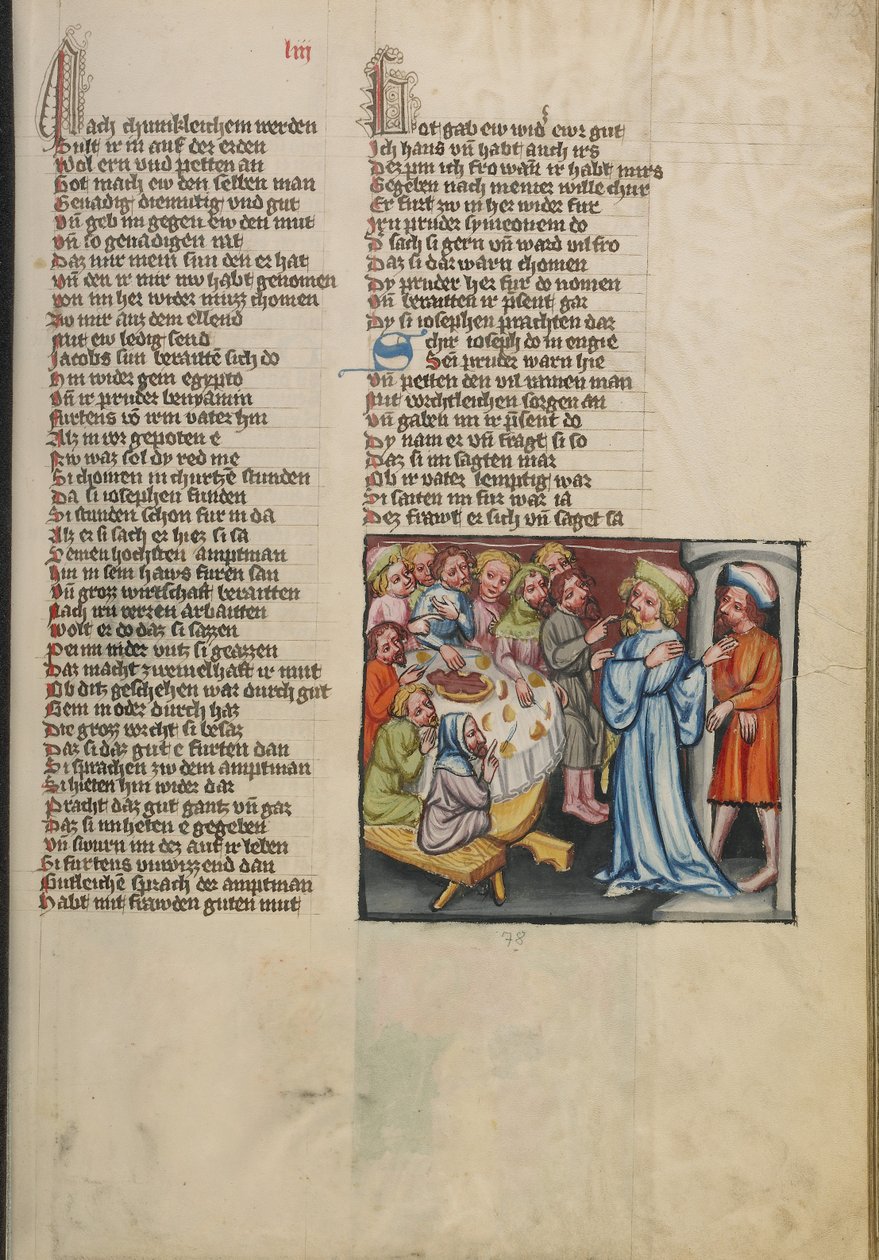 liij
Nach chunikleichem werden
Sult ir in auf der erden
Wol ern vnd petten an
Got mach ew den selben man
Genadig diemutig vnd gut
Vñ geb im gegen ew den mut
Vñ so genadigen rat
Daz mir mein sun den er hat
Vñ den ir mir nw habt genomen
von im her wider muzz chomen
Zw mir auz dem ellend
Mit ew ledig send
Jacobs sun beraitē sich do
Hin wider gem egypto
Vñ ir pruder benyamin
Furtens vō irm vater hin
Alz in wr gepoten e
Nw waz sol dy red me
Si chomen in churtzē stunden
Da si iosephen funden
Si stunden schon fur in da
Alz er si sach er hiez si sa
Seinen hochsten amptman
Hin in sein haws furen san
Vñ grozz wirtschaft beraitten
Nach irn verren arbaitten
Wolt er do daz si sazzen
Pei im nider vntz si geazzen
Daz macht zweiuelhaft ir mut
Ob ditz geschehen war durch gut
Gem in oder durch haz
Die grozz vorcht si besaz
Daz si daz gut e furten dan
Si sprachen zw dem amptman
Si hieten hin wider dar
Pracht daz gut gantz vñ gar
Daz si im heten e gegeben
Vñ swurn im dez auf ir leben
Si furtens vnwizzend dan
Gutleichē sprach der amptman
Habt mit frawden guten mut
Got gab ew wid ewr gut
Ich hans vñ habt auch irs
Dez pin ich fro wañ ir habt mirs
Gegeben nach meiner wille chur
Er furt zw in her wider fur
Irn pruder symeonem do
D sach si gern vñ ward vil fro
Daz si dar warn chomen
Dy pruder her fur do nomen
Vñ beraitten ir p̄sent gar
Dy si iosephen prachten dar
Schir ioseph do in engie
Sei pruder warn hie
Vñ petten den vil innen man
Mit vorchtleichen sorgen an
Vñ gaben im ir p̄sent do
Dy nam er vñ fragt si so
Daz si im sagten mar
Ob ir vater lemptig war
Si saiten im fur war ia
Dez frawt er sich vñ saget sa
78